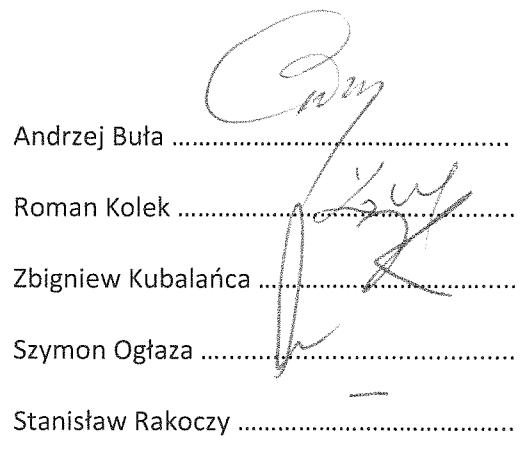 Andrzej Buła ................................................
Roman Kolek ................................................
Zbigniew Kubalańca ....................................
Szymon Ogłaza ............................................
Stanisław Rakoczy .......................................